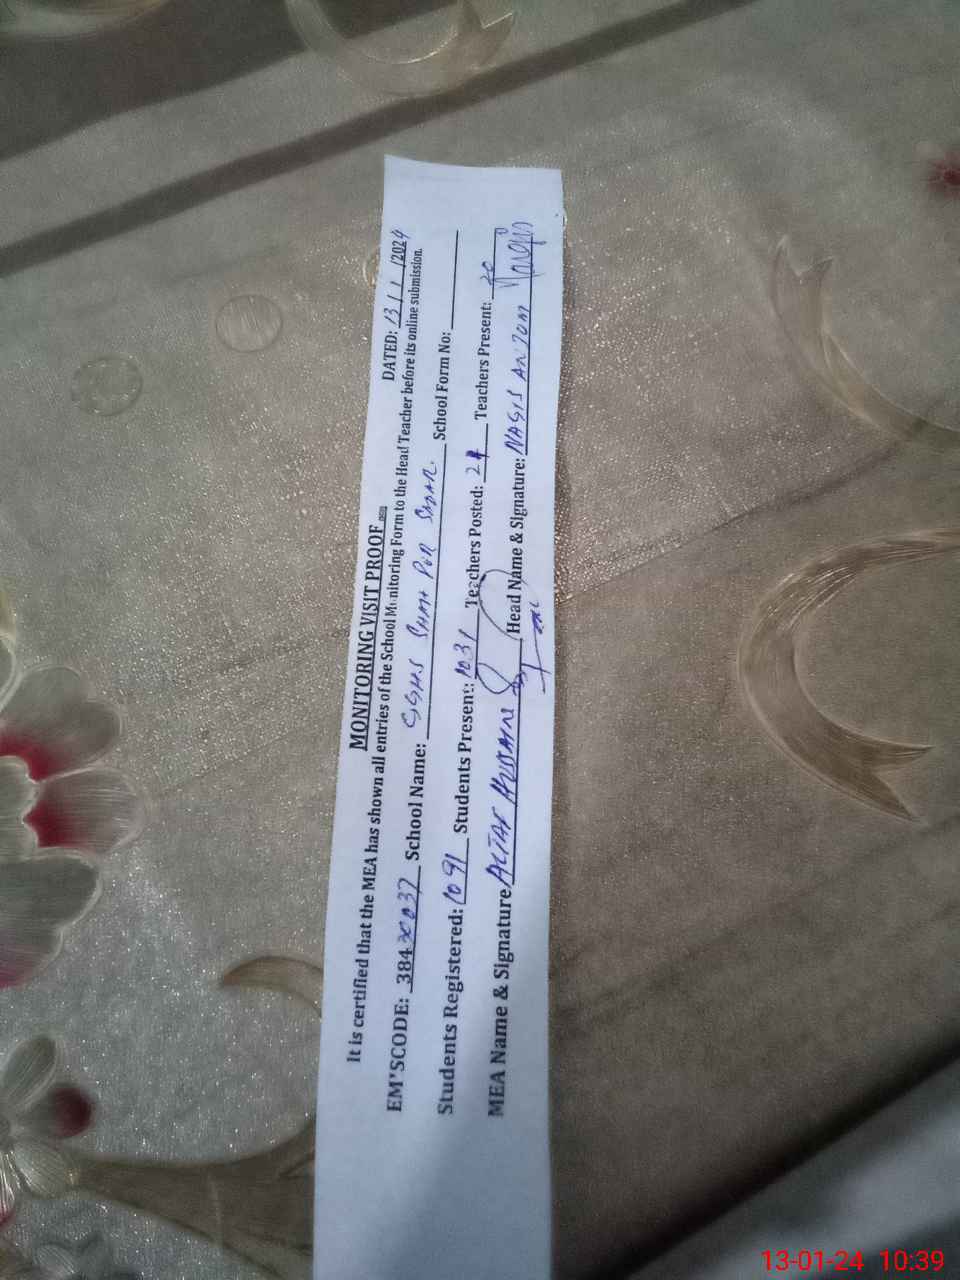 MONITORING VISIT PROOF
DATED: 13/1/2024
It is certified that the MEA has shown all entries of the School Monitoring Form to the Head Teacher before its online submission.
EM'SCODE: 38430037 School Name: GGHS SHAH PUR SADAR. School Form No:
Students Registered: 1091 Students Present: 1031 Teachers Posted: 21 Teachers Present: 20
MEA Name & Signature ALTAF HUSSAIN Head Name & Signature: NAGIS ANJUM
13-01-24 10:39